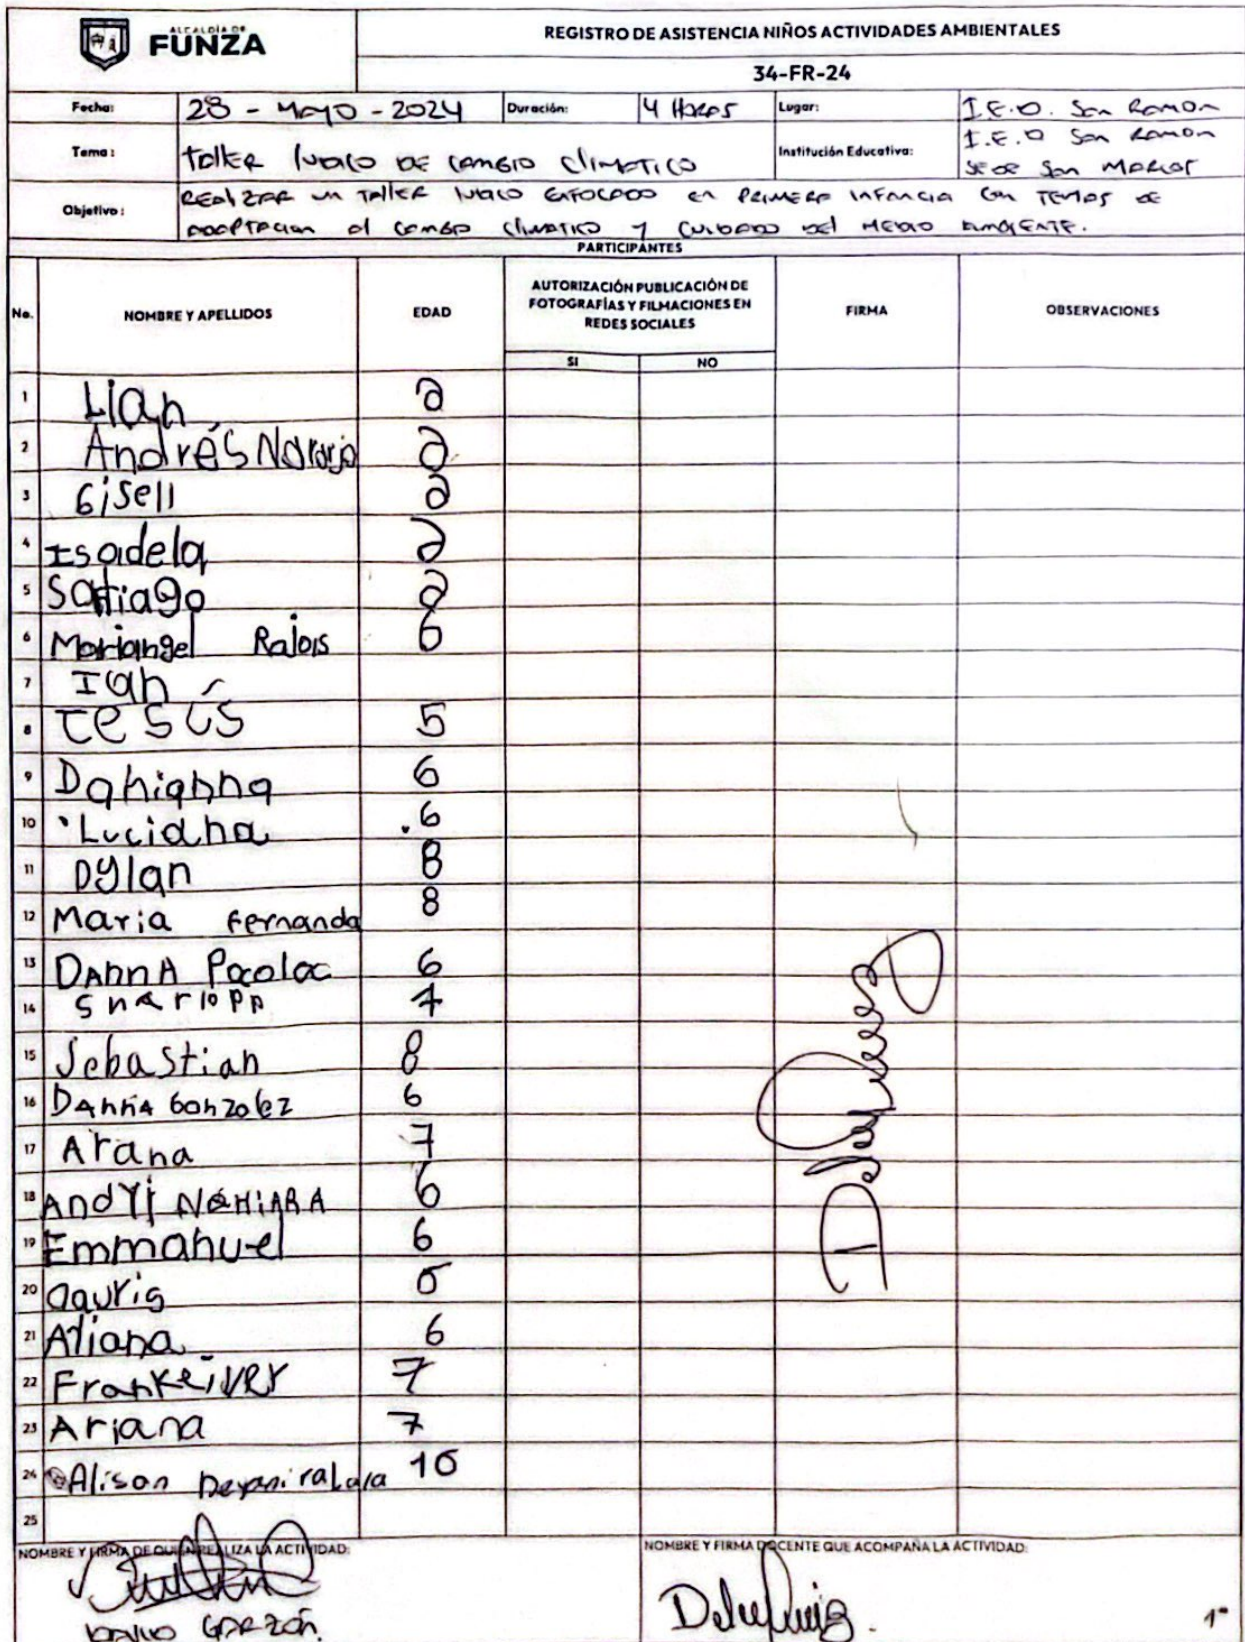 ALCALDÍA DE
FUNZA
REGISTRO DE ASISTENCIA NIÑOS ACTIVIDADES AMBIENTALES
34-FR-24
Fecha: 28 - Mayo - 2024 Duración: 4 Horas Lugar: I.E.O. San Ramon
Tema: Taller ludico de cambio climatico Institución Educativa: I.E.O San Ramon
sede San Marcos
Objetivo: Realizar un taller ludico enfocado en primera infancia con temas de
adaptacion al cambio climatico y cuidado del medio ambiente.
PARTICIPANTES
No. NOMBRE Y APELLIDOS EDAD AUTORIZACIÓN PUBLICACIÓN DE FOTOGRAFÍAS Y FILMACIONES EN REDES SOCIALES FIRMA OBSERVACIONES
SI NO
1 Lian
2 Andrés Naranjo
3 Gisell
4 Isadela
5 Satiago
6 Mariangel 6
7 Ian
8 Iesús 5
9 Dahianna 6
10 Luciana 6
11 Dylan 8
12 Maria Fernanda 8
13 DAnnA 6
14 7
15 Sebastian 8
16 DAnnA Gonzolez 6
17 Arana 7
18 ANdYi NAHiARA 6
19 Emmanuel 6
20
21 Aliana 6
22 Frankeiver 7
23 Ariana 7
24 Alison Deyanira Lara 10
25
NOMBRE Y FIRMA DE QUIEN REALIZA LA ACTIVIDAD: NOMBRE Y FIRMA DOCENTE QUE ACOMPAÑA LA ACTIVIDAD:
Garzón. 1°